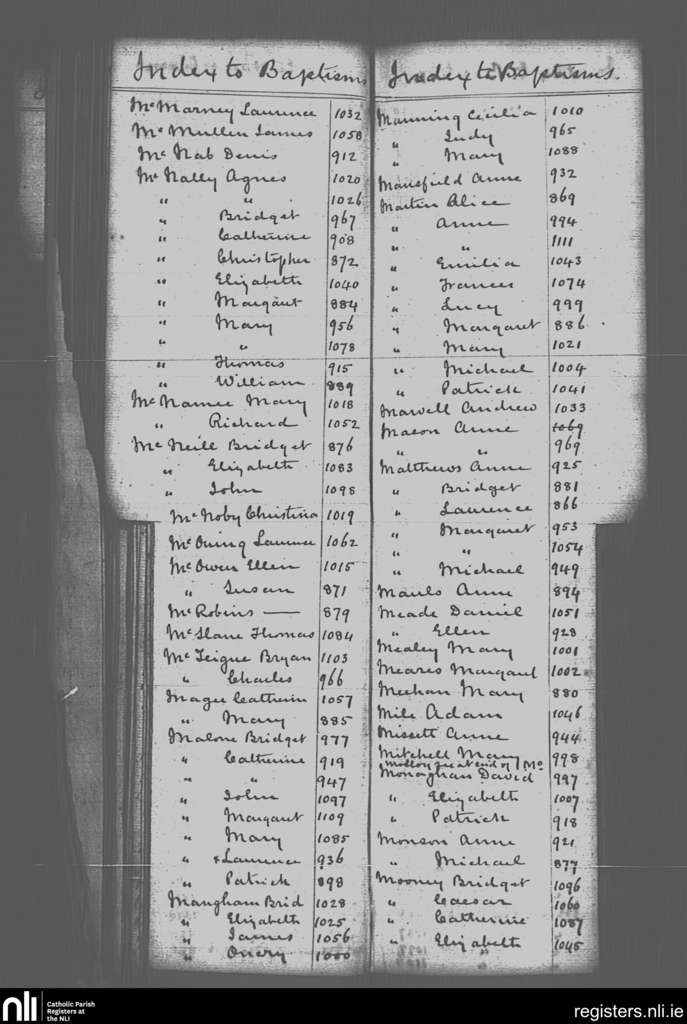 Index to Baptisms
McMarney Laurence 1032
McMullen James 1058
McNab Denis 912
McNally Agnes 1020
" " 1026
" Bridget 967
" Catherine 908
" Christopher 872
" Elizabeth 1040
" Margaret 884
" Mary 956
" " 1078
" Thomas 915
" William 889
McNamee Mary 1018
" Richard 1052
McNeill Bridget 876
" Elizabeth 1083
" John 1098
McNoby Christina 1019
McOwing Laurence 1062
McOwen Ellen 1015
" Susan 871
McRobins — 879
McSlane Thomas 1084
McTeigue Bryan 1103
" Charles 966
Magee Catherin 1057
" Mary 885
Malone Bridget 977
" Catherine 919
" " 947
" John 1097
" Margaret 1109
" Mary 1085
" + Laurence 936
" Patrick 898
Mangham Brid 1028
" Elizabeth 1025
" James 1056
" 1000
Index to Baptisms.
Manning Cecilia 1010
" Judy 965
" Mary 1088
Mansfield Anne 932
Martin Alice 869
" Anne 994
" " 1111
" Emilia 1043
" Frances 1074
" Lucy 999
" Margaret 886
" Mary 1021
" Michael 1004
" Patrick 1041
Marvell Andrew 1033
Mason Anne 1069
" " 969
Matthews Anne 925
" Bridget 881
" Laurence 866
" Margaret 953
" " 1054
" Michael 949
Mauls Anne 894
Meade Daniel 1051
" Ellen 928
Mealey Mary 1001
Meares Margaret 1002
Meehan Mary 880
Mile Adam 1046
Missett Anne 944
Mitchell Mary 998
Molloy see at end of Mc
Monaghan David 997
" Elizabeth 1007
" Patrick 918
Monson Anne 921
" Michael 877
Mooney Bridget 1096
" Caesar 1060
" Catherine 1087
" Elizabeth 1045
"
nli
Catholic Parish
Registers at
the NLI
registers.nli.ie